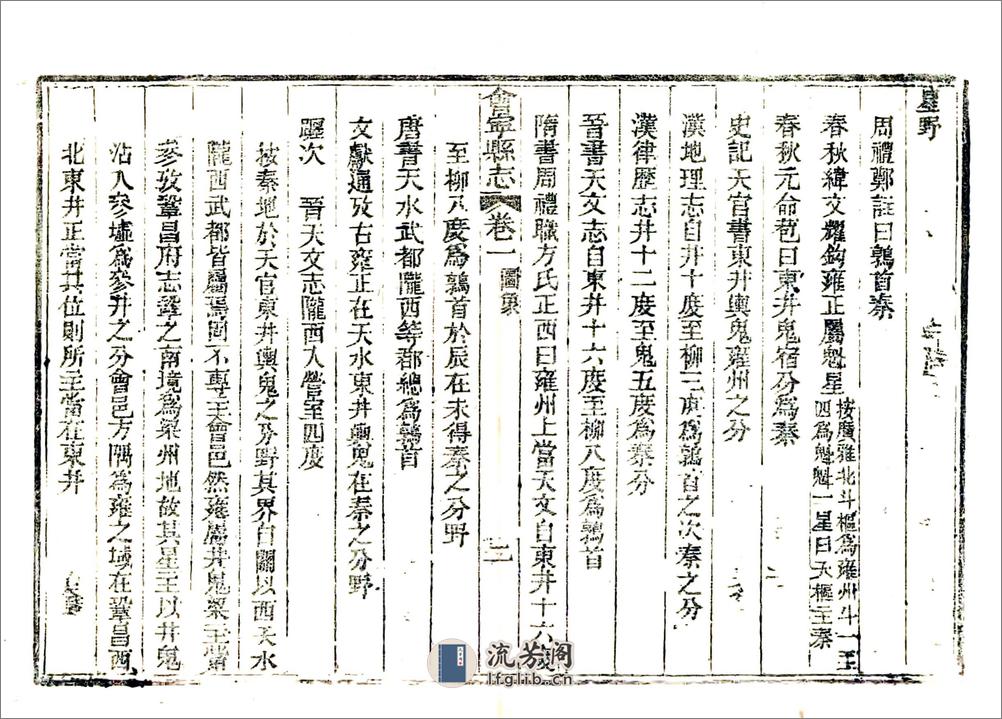 星野
周禮鄭註曰鶉首秦
春秋緯文耀鈎雍正屬魁星
按廣雅北斗樞為雍州斗一至
四為魁魁一星曰天樞主秦
春秋元命苞曰東井鬼宿分為秦
史記天官書東井輿鬼雍州之分
漢地理志自井十度至柳三度為鶉首之次秦之分
漢律歷志井十二度至鬼五度為秦分
晉書天文志自東井十六度至柳八度為鶉首
隋書周禮職方氏正西曰雍州上當天文自東井十六度
會寧縣志 卷一 圖象 二
至柳八度為鶉首於辰在未得秦之分野
唐書天水武都隴西等郡總為鶉首
文獻通攷右雍正在天水東井輿鬼在秦之分野
躔次 晉天文志隴西入營室四度
按秦地於天官東井輿鬼之分野其界自關以西天水
隴西武都皆屬焉固不專主會邑然雍屬井鬼梁主觜
參攷鞏昌府志鞏之南境為梁州地故其星主以井鬼
沾入參墟為參井之分會邑方隅為雍之域在鞏昌西
北東井正當其位則所主當在東井
流芳阁
lfglib.cn